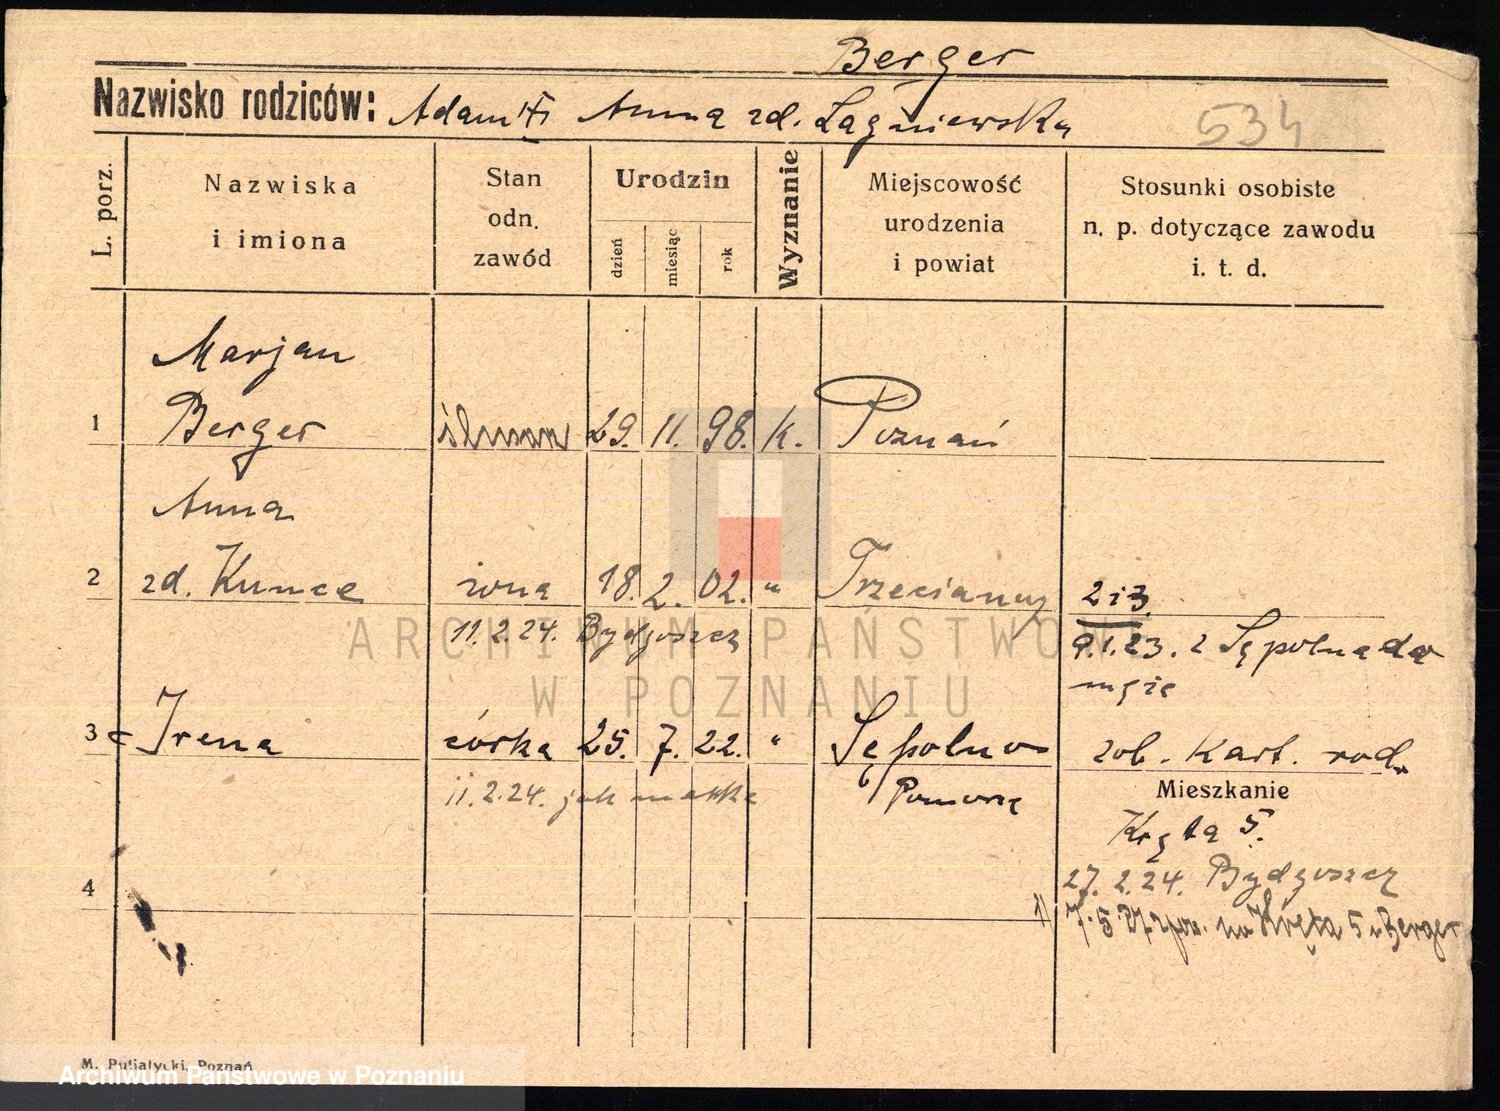 Berger
Nazwisko rodziców: Adam i Anna zd. Łagniewska
534
L. porz.
Nazwiska i imiona
Stan odn. zawód
Urodzin
dzień
miesiąc
rok
Wyznanie
Miejscowość urodzenia i powiat
Stosunki osobiste n. p. dotyczące zawodu i. t. d.
Marjan
1 Berger ślusarz 29. 11. 98. k. Poznań
Anna
2 zd. Kunce żona 18. 2. 02. " Trzeciany
2 i 3
11.2.24. Bydgoszcz
9.1.23. z Sępolna do
męża
3 Irena córka 25. 7. 22. " Sępolno
zob. Kart. rod.
11.2.24. jak matka
Pomorze
Mieszkanie
Kręta 5.
27.2.24. Bydgoszcz
4
7.5 na Kręta 5 Berger
ARCHIWUM PAŃSTWOWE
W POZNANIU
M. Putiatycki, Poznań
Archiwum Państwowe w Poznaniu